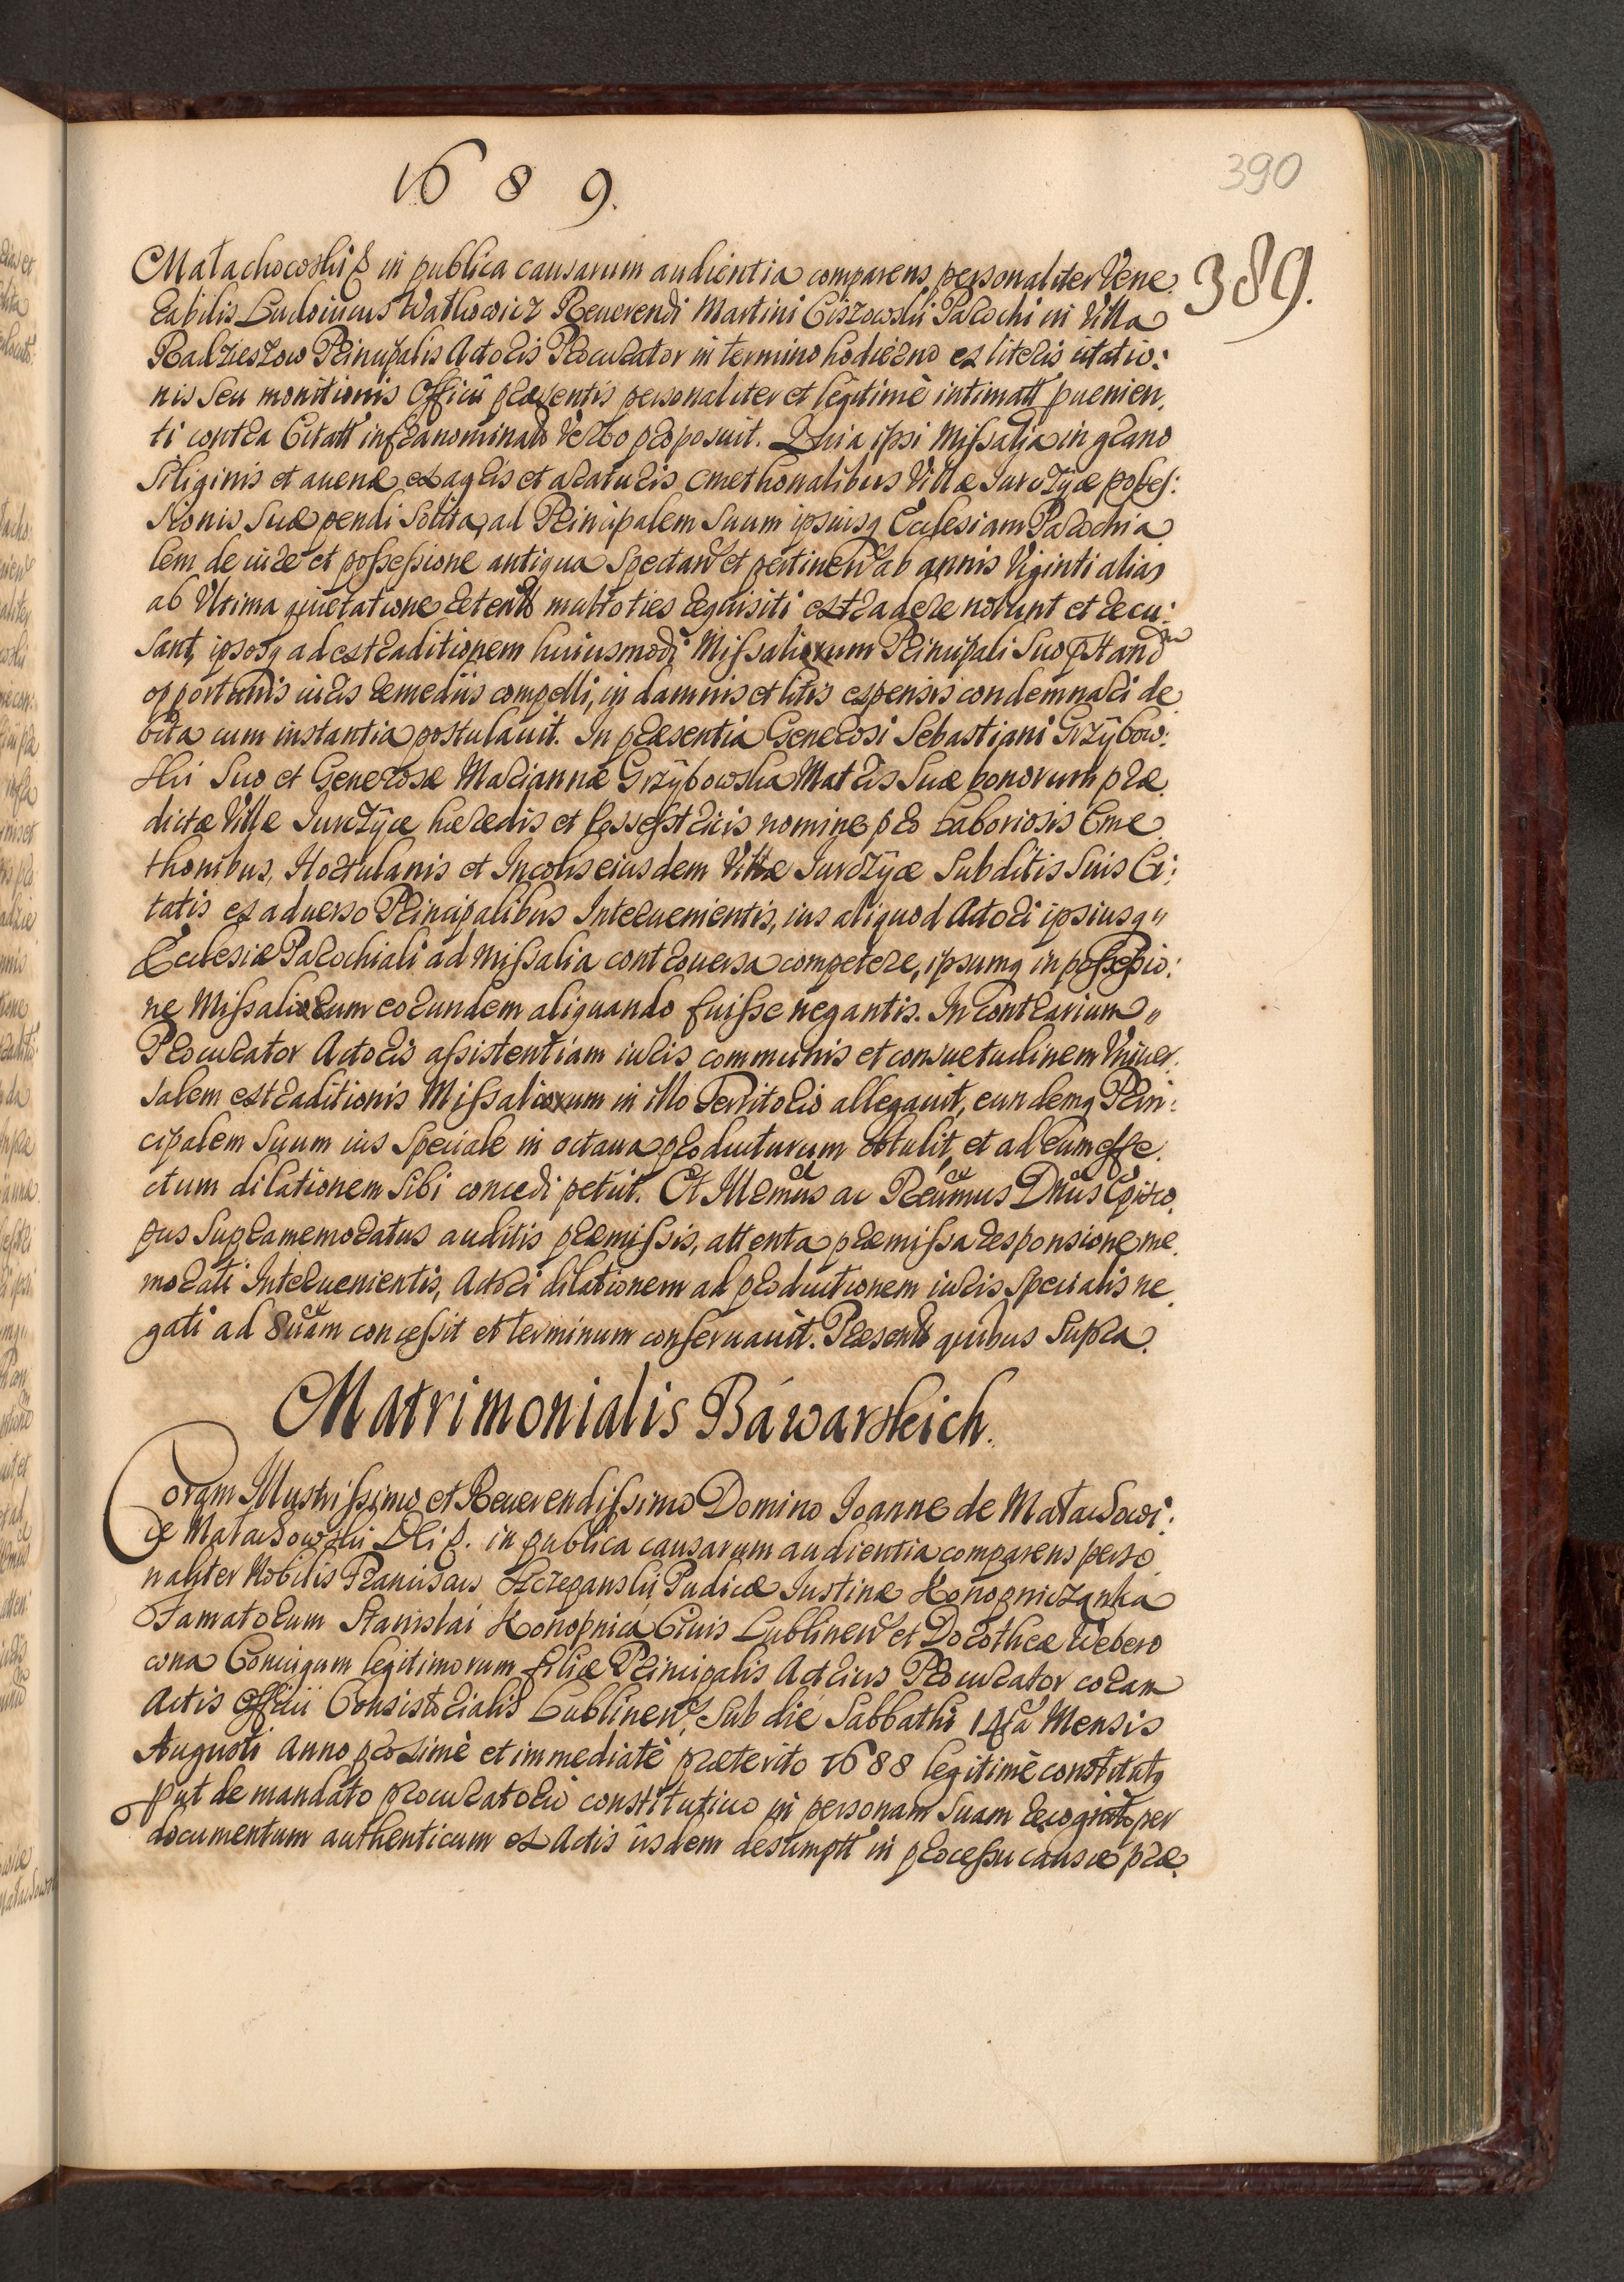 1689.
390
389.
Małachowski & in publica causarum audientia comparens personaliter Vene.
rabilis Ludouicus Watkowicz Reuerendi Martini Ciszowski Parochi in Villa
Radzieszow Principalis Actoris Procurator in termino hodierno ex literis citatio:
nis seu monitionis Officii præsentis personaliter et legitimè intimatt puenien.
ti contra Citatt infranominatos Verbo proposuit. Quia ipsi Missalia in grano
Siliginis et auenæ ex agris et araturis Cmethonalibus Villæ Jurczyce posses:
sionis Suæ pendi Solita, ad Principalem Suum ipsiusq Ecclesiam Parochia
lem de iure et possessione antiqua Spectan et pertinen ab annis Viginti alias
ab Ultima quietatione retenta multoties requisiti extradere nolunt et recu:
sant, ipsosq ad extraditionem huiusmodi Missaliorum Principali Suo pstand
opportunis iuris remediis compelli, in damnis et litis expensis condemnari de
bita cum instantia postulauit. In præsentia Generosi Sebastiani Grzybow:
ski Suo et Generosæ Mariannæ Grzybowska Matris Suæ bonorum præ
dictæ Villæ Jurczyce hæredis et Possestricis nomine pro Laboriosis Cme
thonibus, Hortulanis et Incolis eiusdem Villæ Jurczyce Subditis Suis Ci:
tatis ex aduerso Principalibus Interuenientis, ius aliquod Actori ipsiusq
Ecclesiæ Parochiali ad Missalia controuersa competere, ipsumq in possessio:
ne Missaliorum eorundem aliquando fuisse negantis. In Contrarium
Procurator Actoris assistentiam iuris communis et consuetudinem Vniuer.
salem extraditionis Missaliorum in illo Territorio allegauit, eundemq Prin:
cipalem Suum ius Speciale in octaua producturum obtulit, et ad eum effe.
ctum dilationem Sibi concedi petiit. Et Illrmus ac Reumus Dnus Episco.
pus Supramemoratus auditis præmissis, attenta præmissa responsione me.
morati Interuenientis, Actori dilationem ad productionem iuris Specialis ne.
gati ad 8uam concessit et terminum conseruauit. Presentt quibus Supra.
Matrimonialis Báwarskich.
Coram Illustrissimo et Reuerendissimo Domino Joanne de Małachowi:
ce Małachowski Dei &. in publica causarum audientia comparens perso
naliter Nobilis Franciscus Szczepanski Pudicæ Justinæ Konopniczanka
Famatorum Stanislai Konopnica Ciuis Lublinen et Dorotheæ Webero
wna Coniugum legitimorum filiæ Principalis Actricis Procurator coram
Actis Officii Consistorialis Lublinen, Sub die Sabbathi 14ta Mensis
Augusti Anno proximè et immediatè præterito 1688 legitimè constitutq
put de mandato procuratorio constitutiuo in personam Suam recognito per
documentum authenticum ex Actis iisdem desumptt in processu causæ præ.